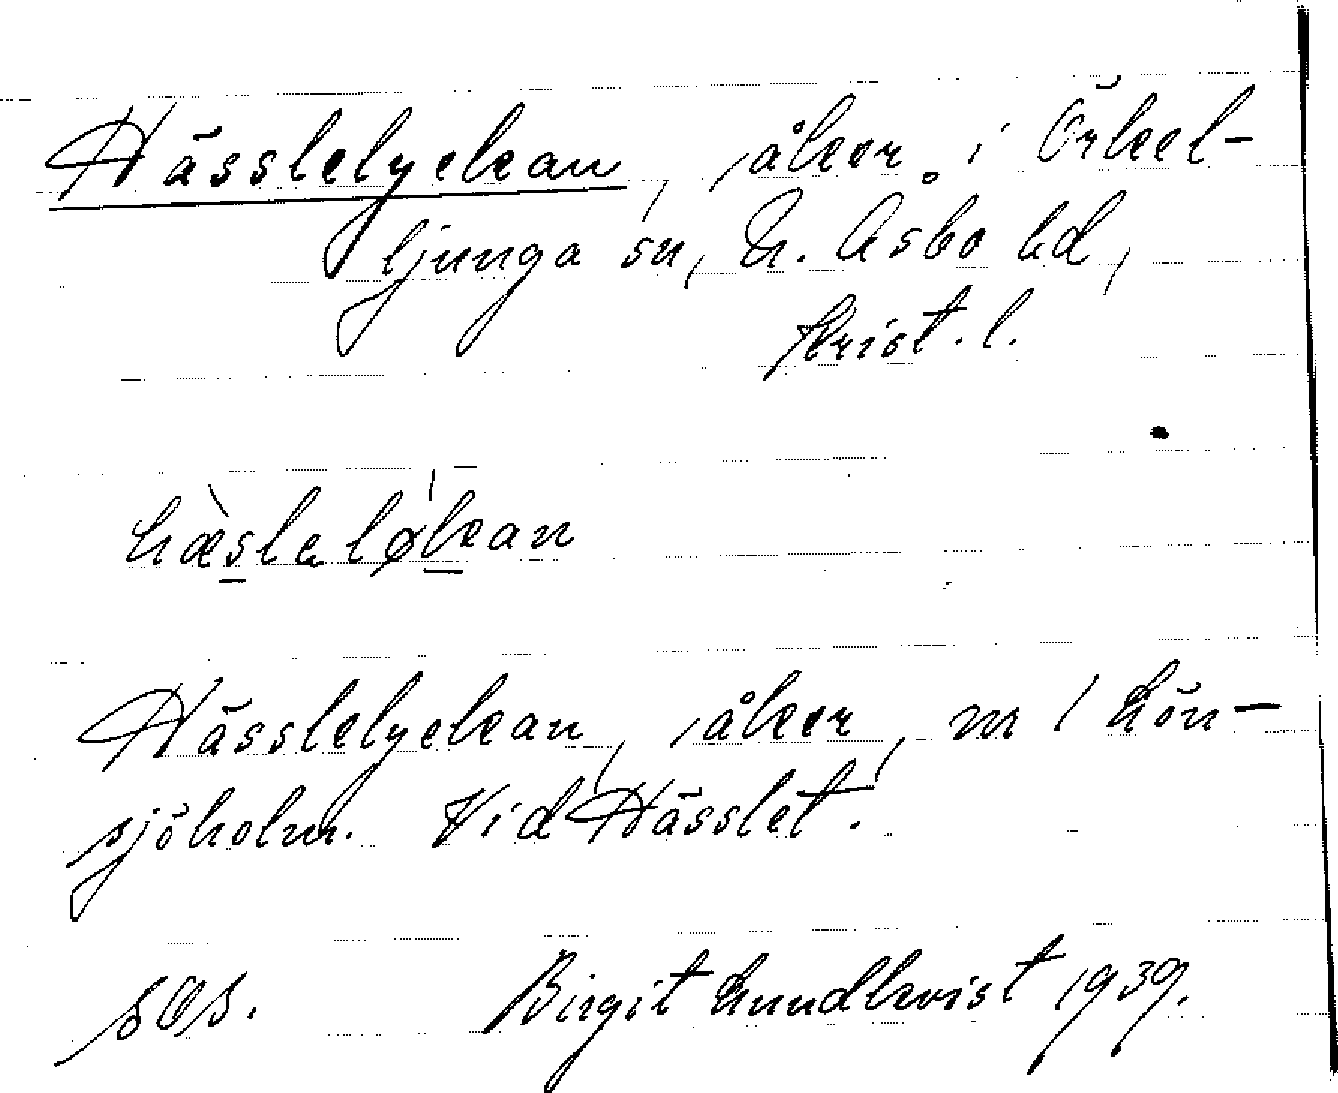 Hässlelyckan, åker i Örkel-
ljunga sn, N. Åsbo hd,
Krist. l.
hæ̀slaløkan
Hässlelyckan, åker, nr 1 Lön-
sjöholm. Vid Hässlet.
SOS. Birgit Lundkvist 1939.